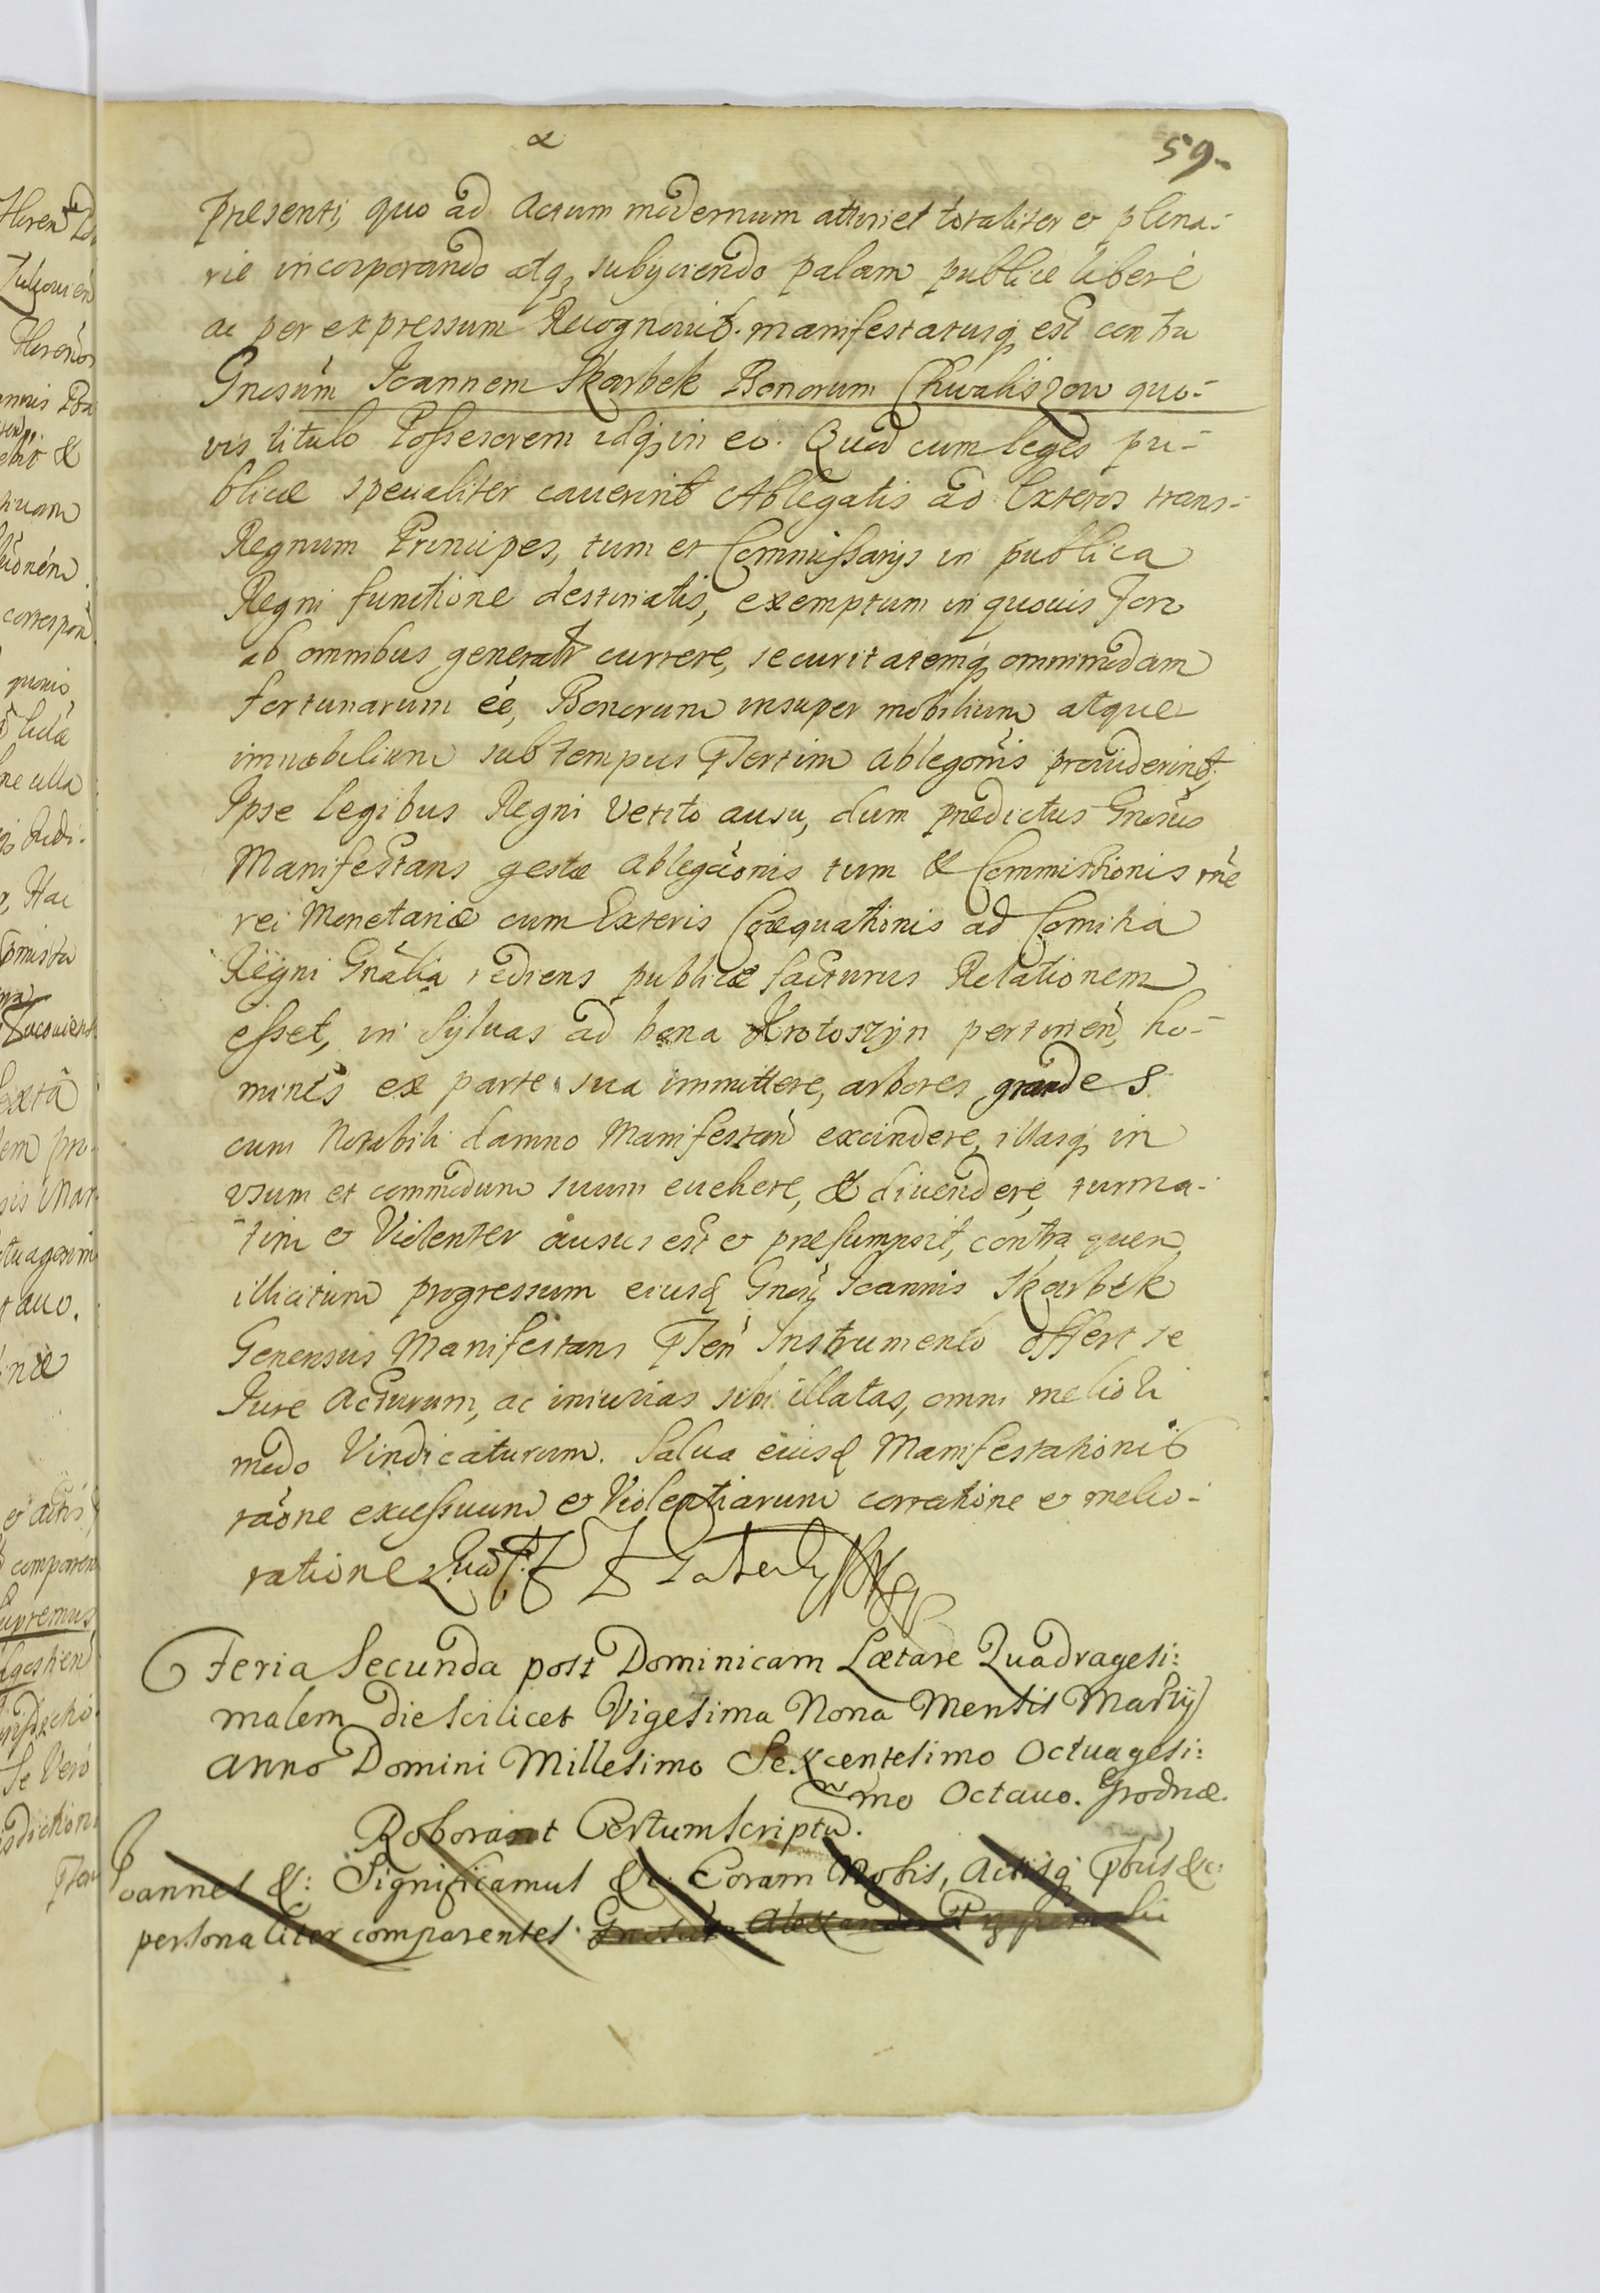 59.
presenti, quo ad Actum modernum attinet totaliter et plena-
rie incorporando atq, subijciendo palam publice libere
ac per expressum Recognovit. manifestatusq, est contra
Gnosum Joannem Skarbek Bonorum Chwaliszow quo-
vis titulo Possesorem idq, in eo. Quod cum leges pu-
blicæ specialiter caverint Ablegatis ad Exteros trans-
Regnum Principes, tum et Commissarijs in publica
Regni functione destinatis, exemptum in quovis Foro
ab omnibus generalr currere, securitatemq, omnimodam
fortunarum eé, Bonorum insuper mobilium atque
immobilium sub tempus ablegonis providerint,
Ipse legibus Regni vetito ausu, dum predictus Gnosus
Manifestans gestæ ablegaonis tum & Commissionis rne
rei Monetariæ cum Exteris Coæquationis ad Comitia
Regni Gnalia rediens publicæ facturus Relationem
esset, in Sylvas ad bona Krotoszyn pertinen, ho-
mines ex parte sua immittere, arbores grandes
cum Notabili damno Manifestan excindere, illasq, in
usum et commodum suum evehere, & divendere, turma-
tim et Violenter ausus est et presumpsit, contra quem
illicitum progressum eiusd Gnosi Joannis Skarbek
Genensus Manifestans Instrumento offert se
Jure Acturum, ac iniurias sibi illatas, omni meliori
modo Vindicaturum. Salva eiusd Manifestationis
raone excessuum et Violentiarum correctione et melio-
ratione
Feria Secunda post Dominicam Lætare Quadragesi:
malem die scilicet Vigesima Nona Mensis Martij
anno Domini Millesimo Sexcentesimo Octuagesi:
mo Octavo. Grodnæ.
Roborant Certum Scriptu.
Joannes &: Significamus &c. Coram Nobis, Actisq, &c:
personaliter comparentes. Gnosus Alexander